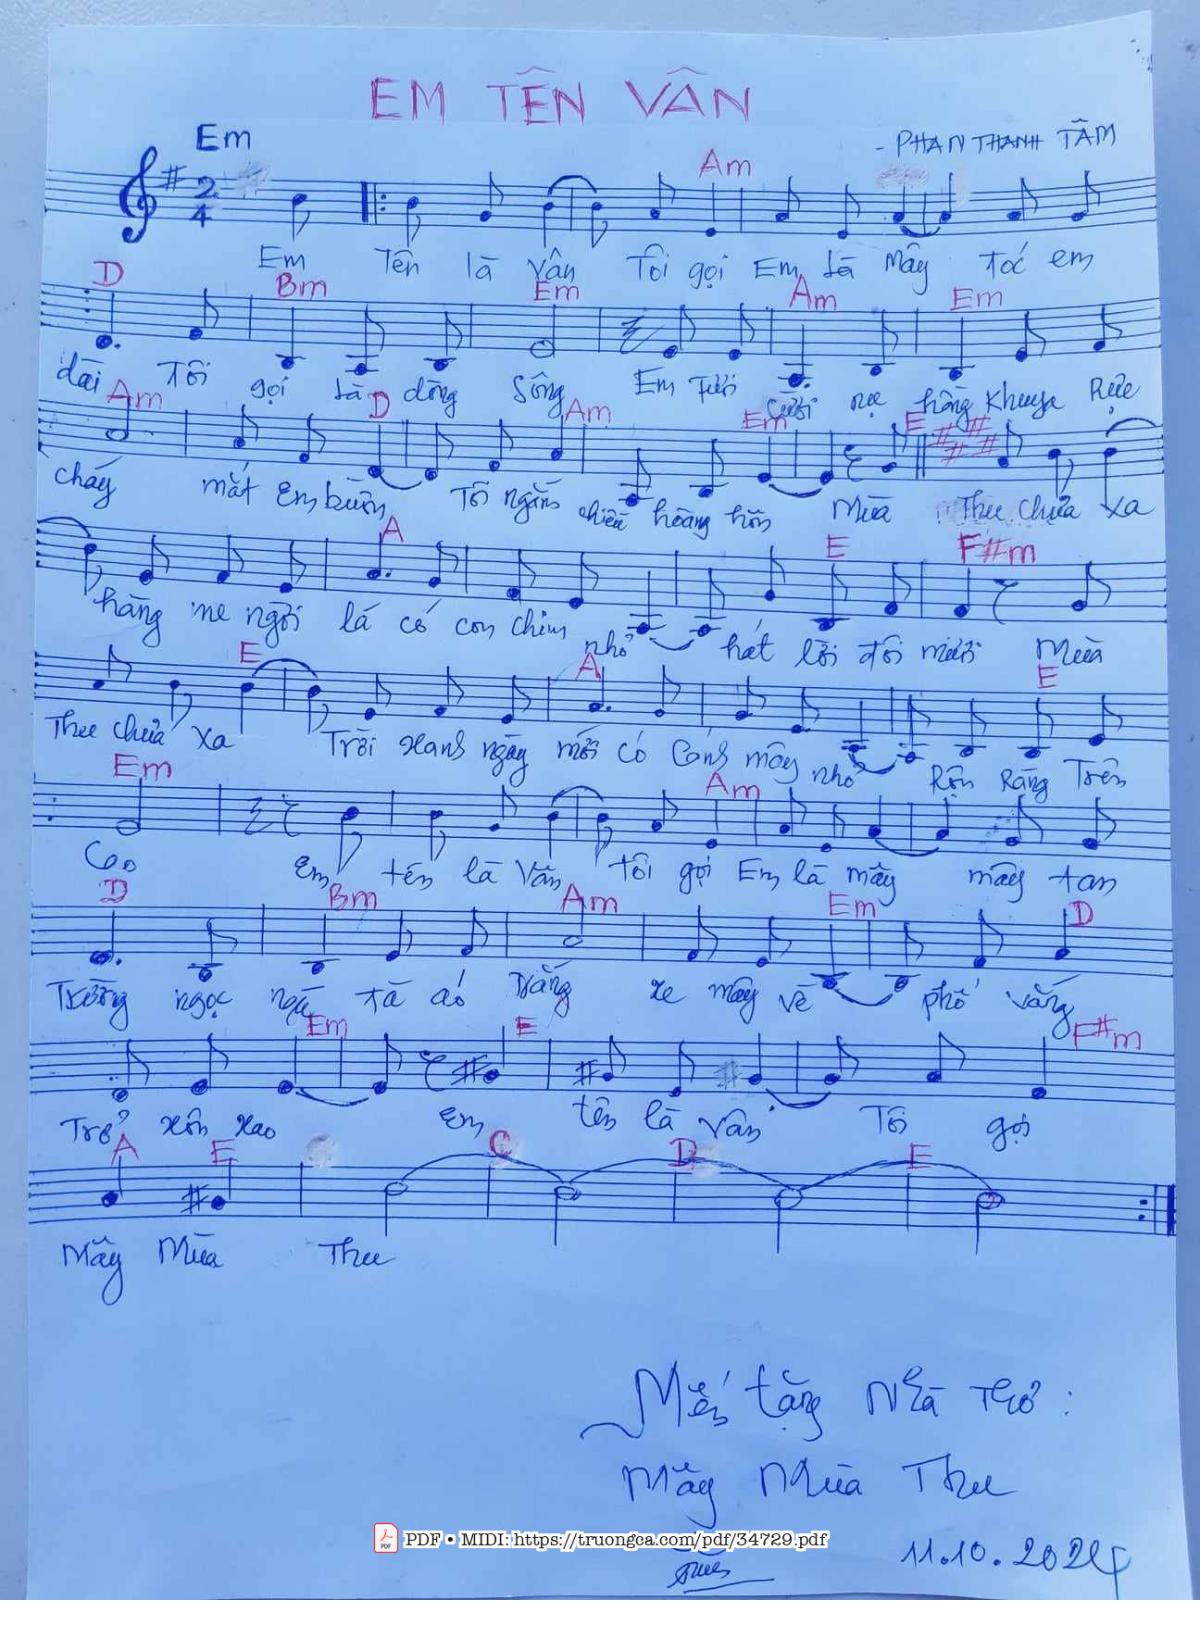 EM TÊN VÂN
Em
- PHAN THANH TÂM
Am
Em Tên là Vân Tôi gọi Em là Mây tóc em
D Bm Em Am Em
dài Tôi gọi là dòng Sông Em Tươi cười rực hồng khuya Rực
Am D Am Em E
cháy mắt Em buồn Tôi ngắm chiều hoàng hôn Mùa Thu chưa xa
A E F#m
hàng me ngời lá có con chim nhỏ hát lời đôi mươi Mùa
E A E
Thu chưa xa Trời xanh ngày mới có Cánh mây nhỏ Rộn Ràng Trên
Em Am
Cao Em tên là Vân tôi gọi Em là mây mây tan
D Bm Am Em D
Trường ngọc ngà tà áo Trắng xe mây về phố vắng
Em E F#m
Trở xôn xao em tên là vân Tôi gọi
A E C D E
Mây Mùa Thu
Mến tặng Nhà Thơ:
Mây Mùa Thu
PDF • MIDI: https://truongca.com/pdf/34729.pdf
11.10.2024